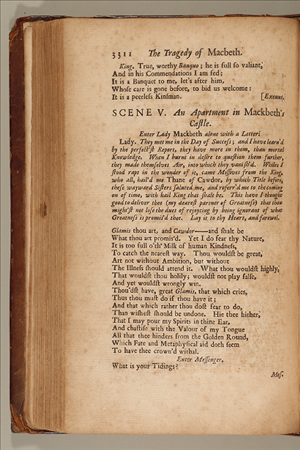 3311 The Tragedy of Macbeth.
King. True, worthy Banquo; he is full so valiant,
And in his Commendations I am fed;
It is a Banquet to me, let's after him,
Whose care is gone before, to bid us welcome:
It is a peereless Kinsman. [Exeunt.
SCENE V. An Apartment in Mackbeth's
Castle.
Enter Lady Mackbeth alone with a Letter:
Lady. They met me in the Day of Success; and I have learn'd
by the perfect'st Report, they have more in them, than mortal
Knowledge. When I burnt in desire to question them further,
they made themselves Air, into which they vanish'd. While I
stood rapt in the wonder of it, came Missives from the King,
who all, hail'd me Thane of Cawdor, by which Title before,
these wayward Sisters saluted me, and referr'd me to the coming
on of time, with hail King that shalt be. This have I thought
good to deliver thee (my dearest partner of Greatness) that thou
might'st not lose the dues of rejoycing by being ignorant of what
Greatness is promis'd thee. Lay it to thy Heart, and farewel.
Glamis thou art, and Cawdor—and shalt be
What thou art promis'd. Yet I do fear thy Nature,
It is too full o'th' Milk of human Kindness,
To catch the nearest way. Thou wouldst be great,
Art not without Ambition, but without
The Illness should attend it. What thou wouldst highly,
That wouldst thou holily; wouldst not play false,
And yet wouldst wrongly win.
Thou'dst have, great Glamis, that which cries,
Thus thou must do if thou have it;
And that which rather thou dost fear to do,
Than wishest should be undone. Hie thee hither,
That I may pour my Spirits in thine Ear,
And chastise with the Valour of my Tongue
All that thee hinders from the Golden Round,
Which Fate and Metaphysical aid doth seem
To have thee crown'd withal.
Enter Messenger.
What is your Tidings?
Mes.